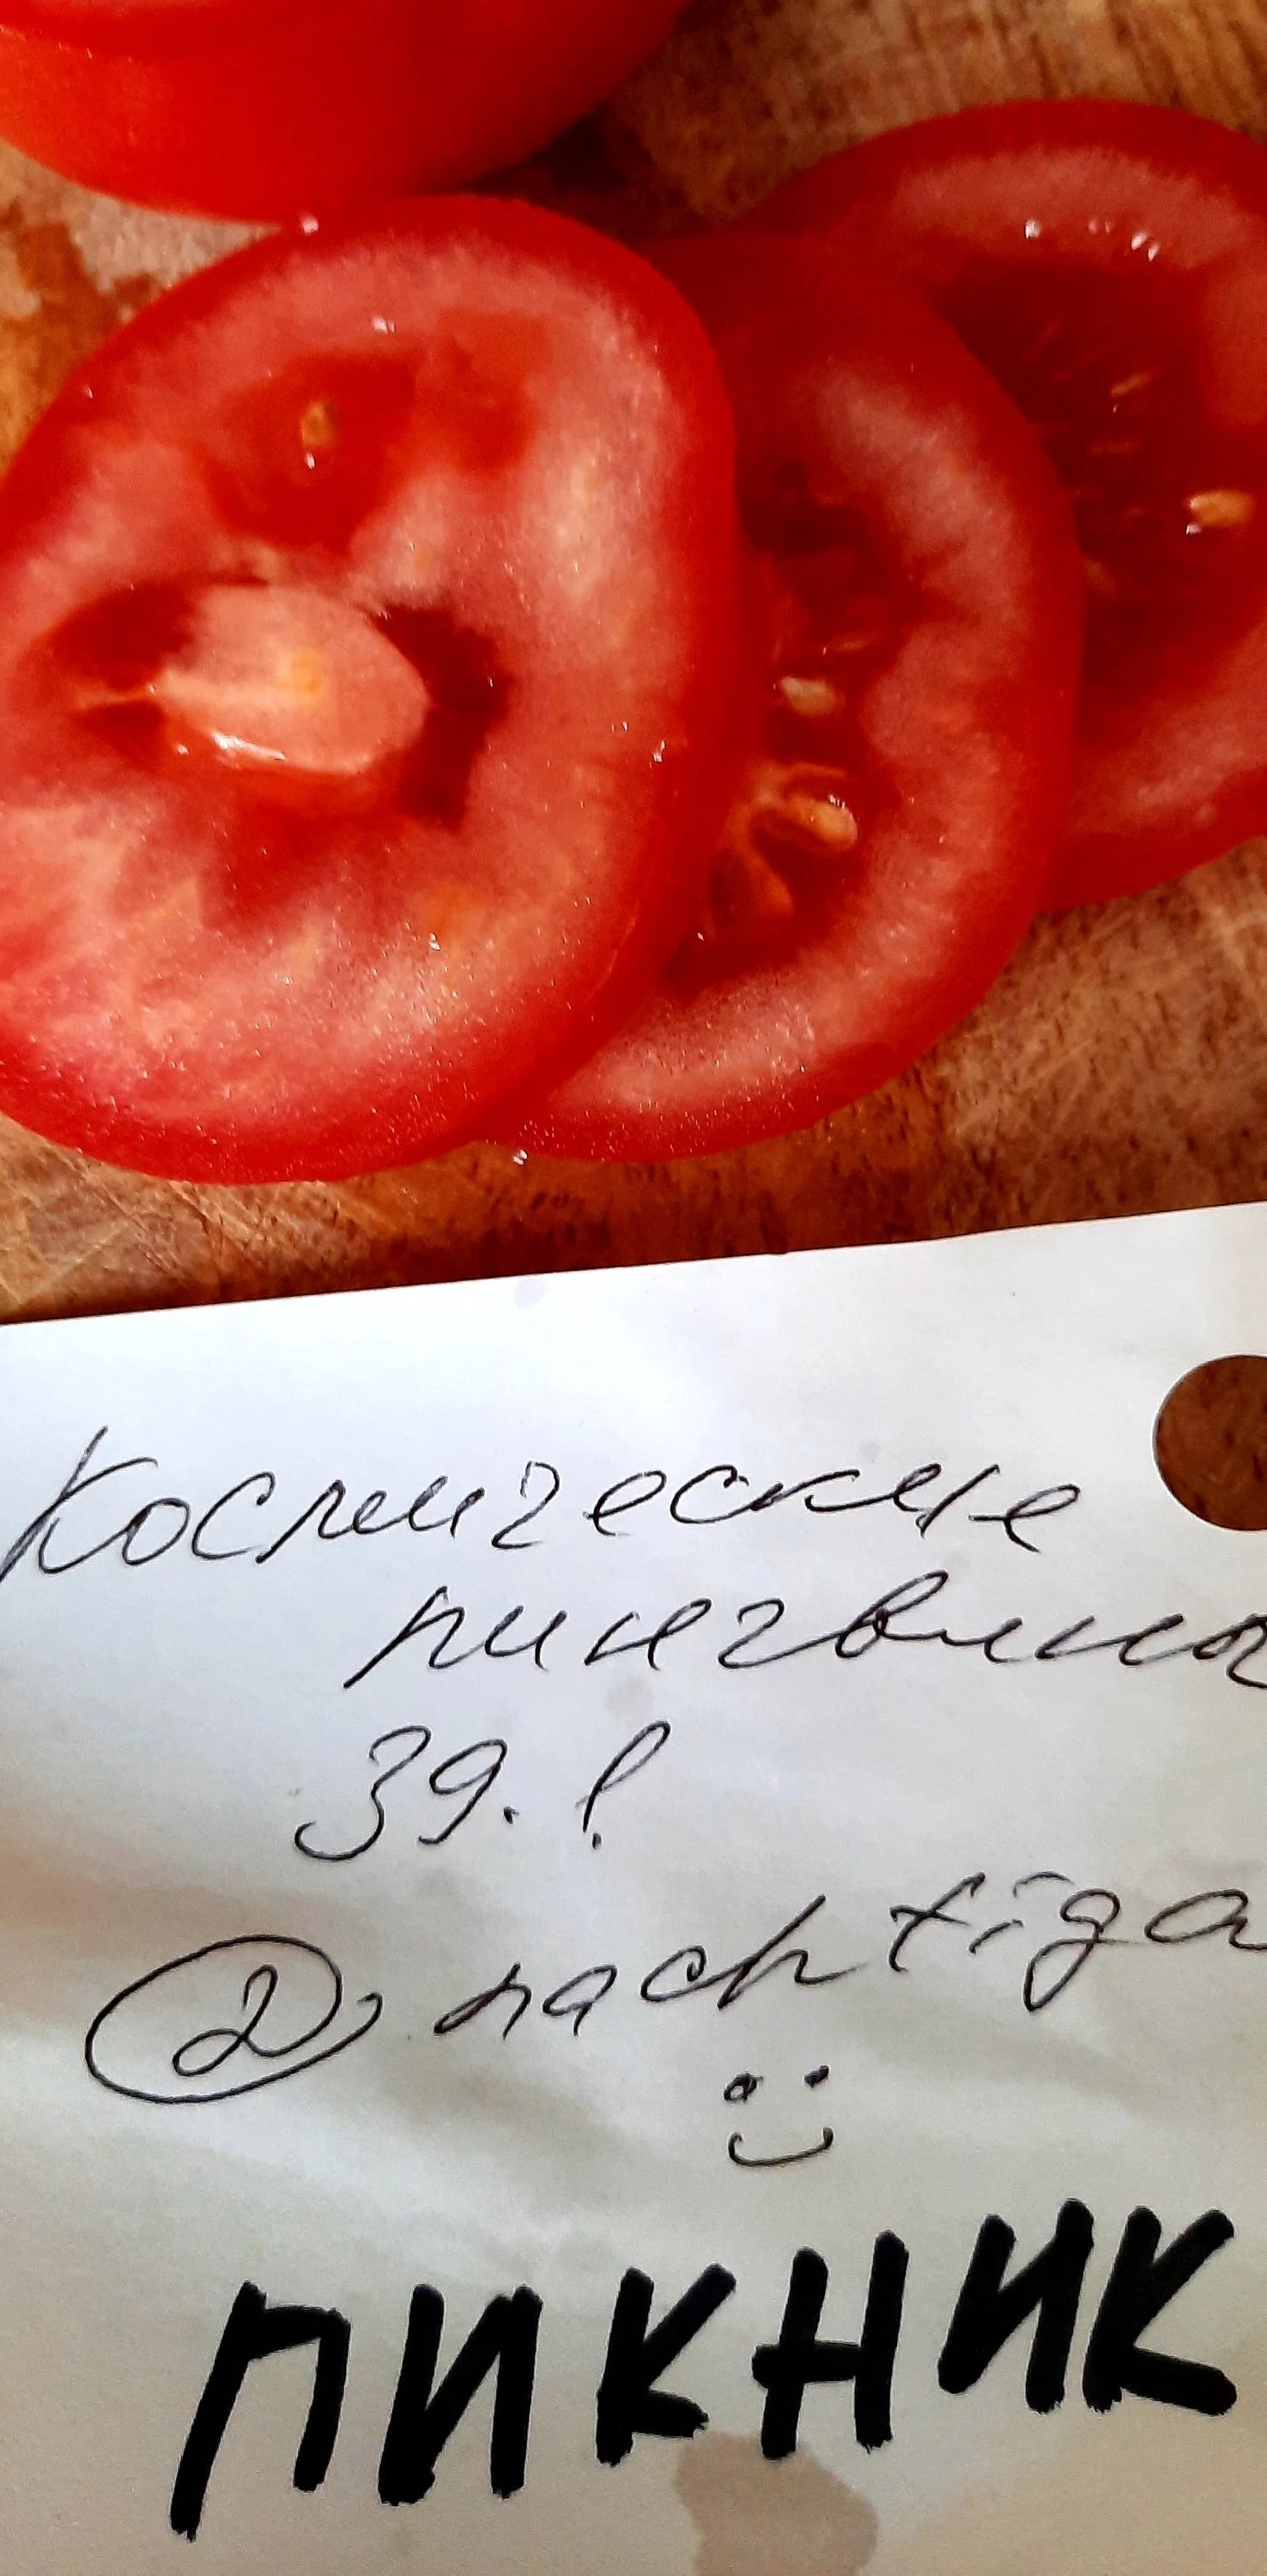 Космические
пингвины
39.!
@nachtiga
ПИКНИК